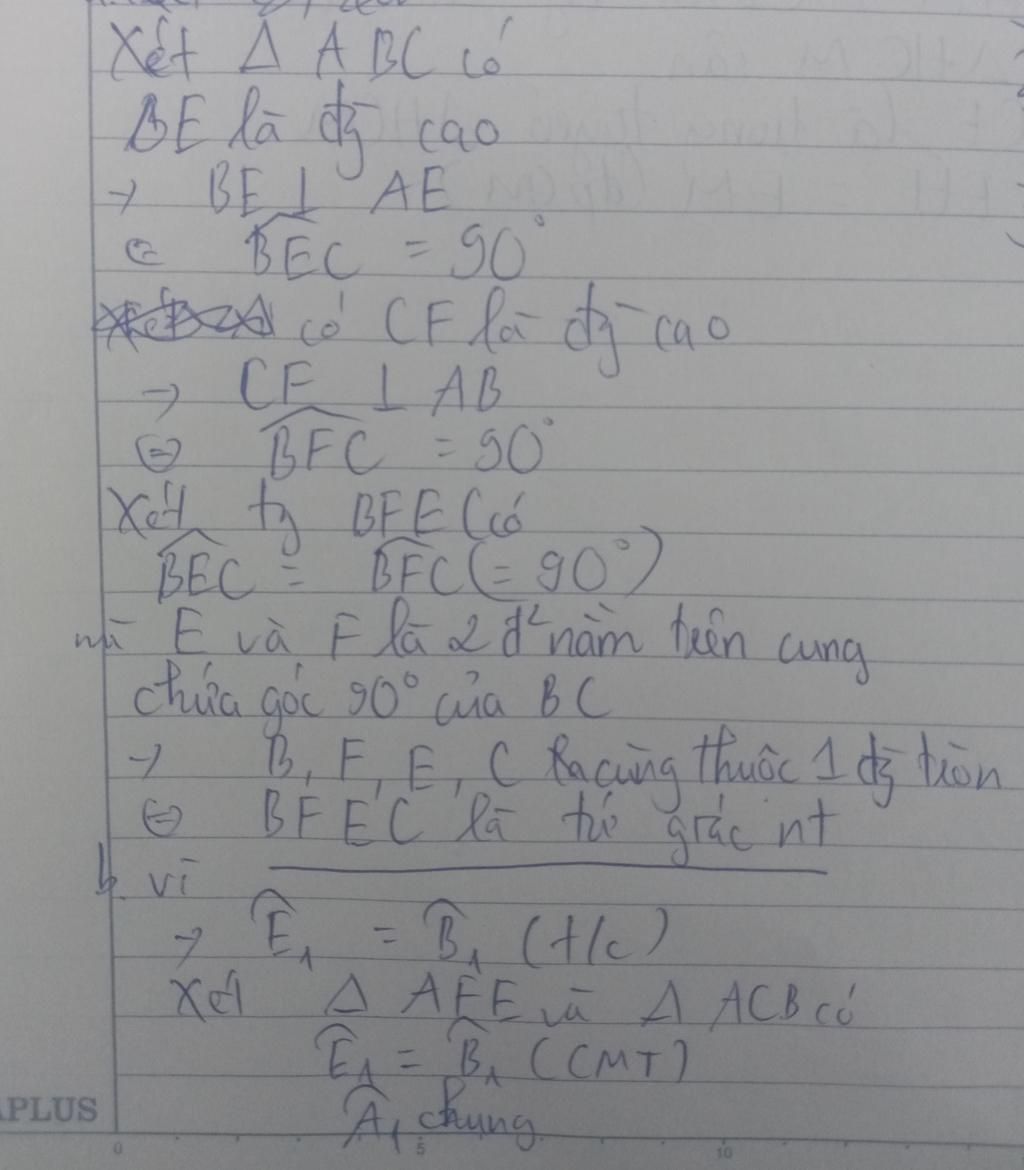 Xét Δ ABC có
BE là đg cao
→ BE ⊥ AE
⇔ BEC = 90°
có CF là đg cao
→ CF ⊥ AB
⇔ BFC = 90°
Xét tg BFEC có
BEC = BFC (= 90°)
mà E và F là 2 đ² nằm trên cung
chứa góc 90° của BC
→ B, F, E, C cùng thuộc 1 đg tròn
⇔ BFEC là tứ giác nt
b. vì
→ E₁ = B₁ (t/c)
Xét Δ AFE và Δ ACB có
E₁ = B₁ (CMT)
A₁ chung
APLUS
0 5 10